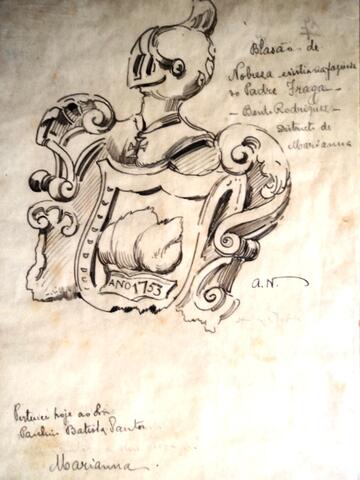 Blasão de
Nobreza existia na fazenda
do Padre Fraga -
- Bento Rodrigues -
Districto de
Marianna
ANO 1753
A.N.
Pertence hoje ao Snr.
Batista Santos
Marianna.